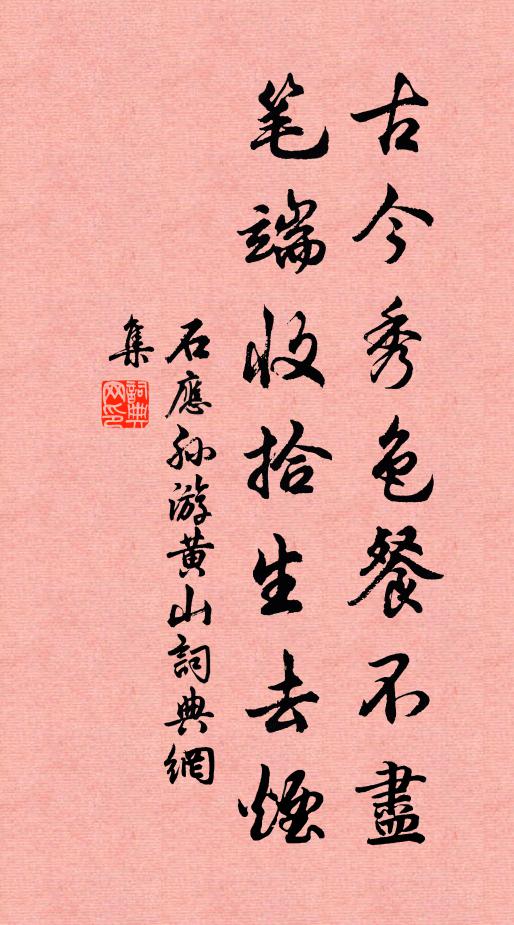 古今秀色餐不盡
笔端收拾生去煙
石應孙游黄山詞典網
集
詞典網印